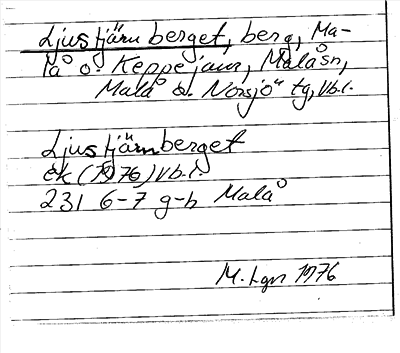 Ljustjärnberget, berg, Ma-
lå o. Keppejaur, Malå sn,
Malå o. Norsjö tg, Vb.l.
Ljustjärnberget
ek (1976) Vb.l.
231 6-7 g-h Malå
M. Lgn 1976